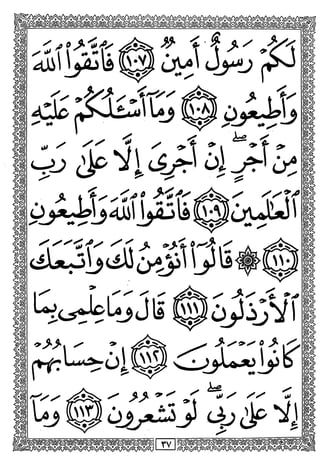 لَكُمْ رَسُولٌ أَمِينٌ ١٠٧ فَٱتَّقُوا۟ ٱللَّهَ
وَأَطِيعُونِ ١٠٨ وَمَآ أَسْـَٔلُكُمْ عَلَيْهِ
مِنْ أَجْرٍ ۖ إِنْ أَجْرِىَ إِلَّا عَلَىٰ رَبِّ
ٱلْعَـٰلَمِينَ ١٠٩ فَٱتَّقُوا۟ ٱللَّهَ وَأَطِيعُونِ
١١٠ ۞ قَالُوٓا۟ أَنُؤْمِنُ لَكَ وَٱتَّبَعَكَ
ٱلْأَرْذَلُونَ ١١١ قَالَ وَمَا عِلْمِى بِمَا
كَانُوا۟ يَعْمَلُونَ ١١٢ إِنْ حِسَابُهُمْ
إِلَّا عَلَىٰ رَبِّى ۖ لَوْ تَشْعُرُونَ ١١٣ وَمَآ
٣٧